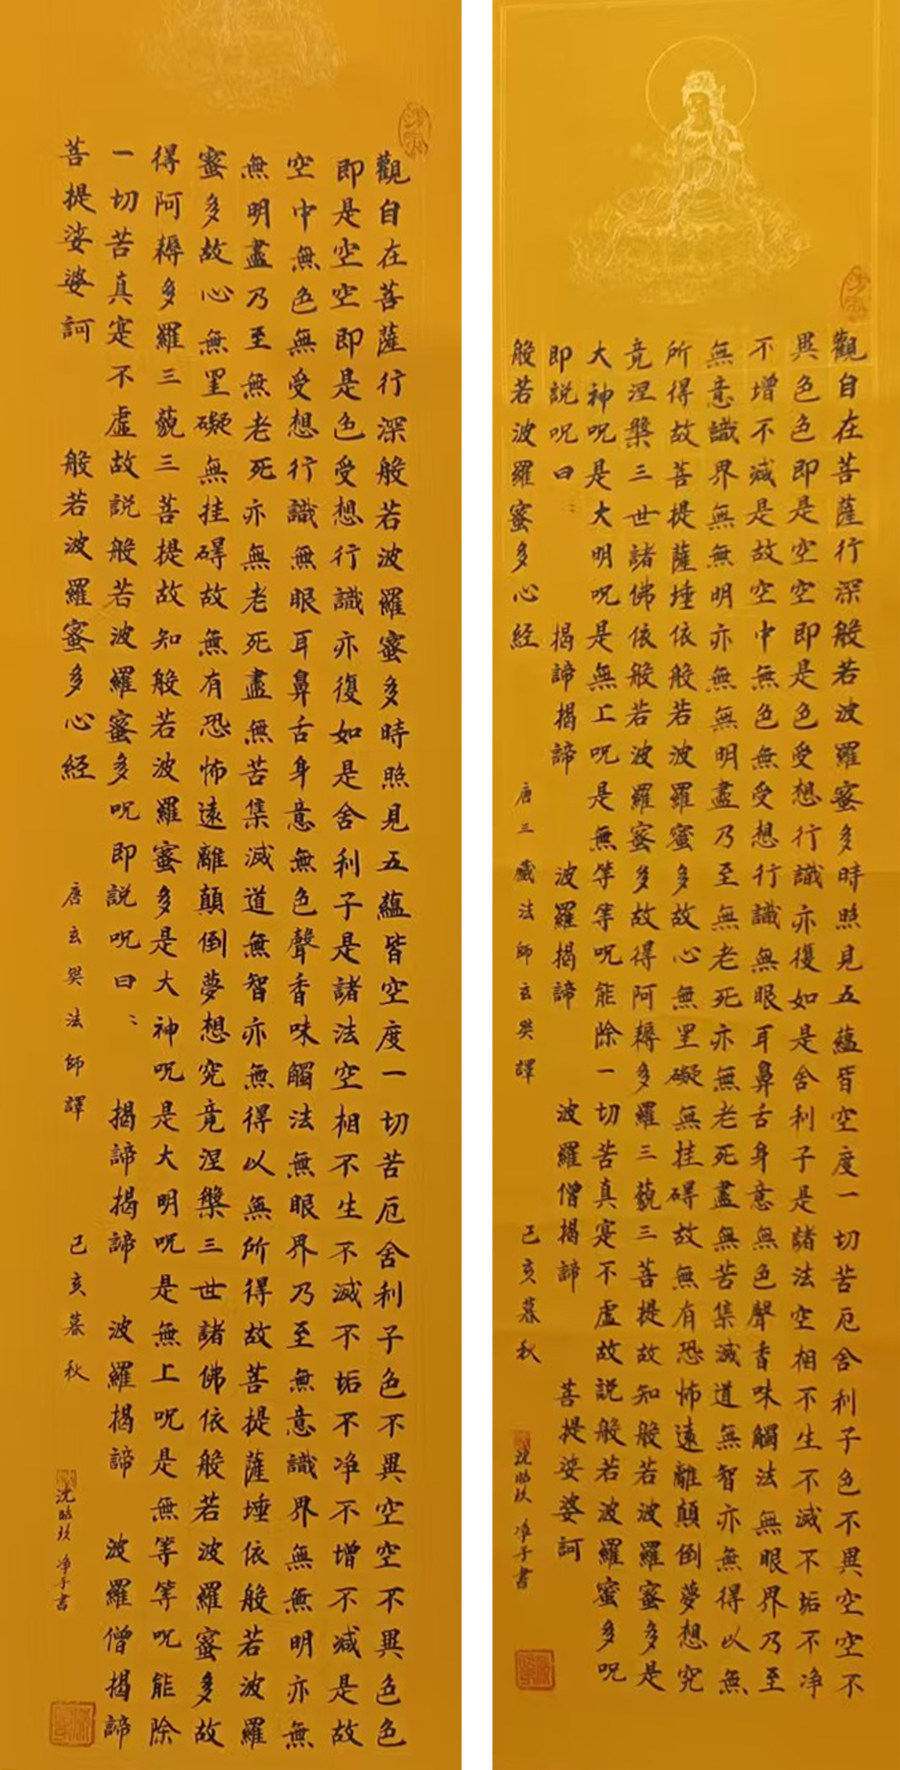 觀自在菩薩行深般若波羅蜜多時照見五蘊皆空度一切苦厄舍利子色不異空空不異色色
即是空空即是色受想行識亦復如是舍利子是諸法空相不生不滅不垢不净不增不減是故
空中無色無受想行識無眼耳鼻舌身意無色聲香味觸法無眼界乃至無意識界無無明亦無
無明盡乃至無老死亦無老死盡無苦集滅道無智亦無得以無所得故菩提薩埵依般若波羅
蜜多故心無罣礙無挂碍故無有恐怖遠離顛倒夢想究竟涅槃三世諸佛依般若波羅蜜多故
得阿耨多羅三藐三菩提故知般若波羅蜜多是大神呪是大明呪是無上呪是無等等呪能除
一切苦真寔不虛故説般若波羅蜜多呪即説呪曰： 揭諦揭諦 波羅揭諦 波羅僧揭諦
菩提娑婆訶 般若波羅蜜多心经 唐玄奘法師譯 己亥暮秋
沈 净手書
觀自在菩薩行深般若波羅蜜多時照見五蘊皆空度一切苦厄舍利子色不異空空不
異色色即是空空即是色受想行識亦復如是舍利子是諸法空相不生不滅不垢不净
不增不減是故空中無色無受想行識無眼耳鼻舌身意無色聲香味觸法無眼界乃至
無意識界無無明亦無無明盡乃至無老死亦無老死盡無苦集滅道無智亦無得以無
所得故菩提薩埵依般若波羅蜜多故心無罣礙無挂碍故無有恐怖遠離顛倒夢想究
竟涅槃三世諸佛依般若波羅蜜多故得阿耨多羅三藐三菩提故知般若波羅蜜多是
大神呪是大明呪是無上呪是無等等呪能除一切苦真寔不虛故説般若波羅蜜多呪
即説呪曰： 揭諦揭諦 波羅揭諦 波羅僧揭諦 菩提娑婆訶
般若波羅蜜多心经 唐三藏法師玄奘譯 己亥暮秋
沈 净手書